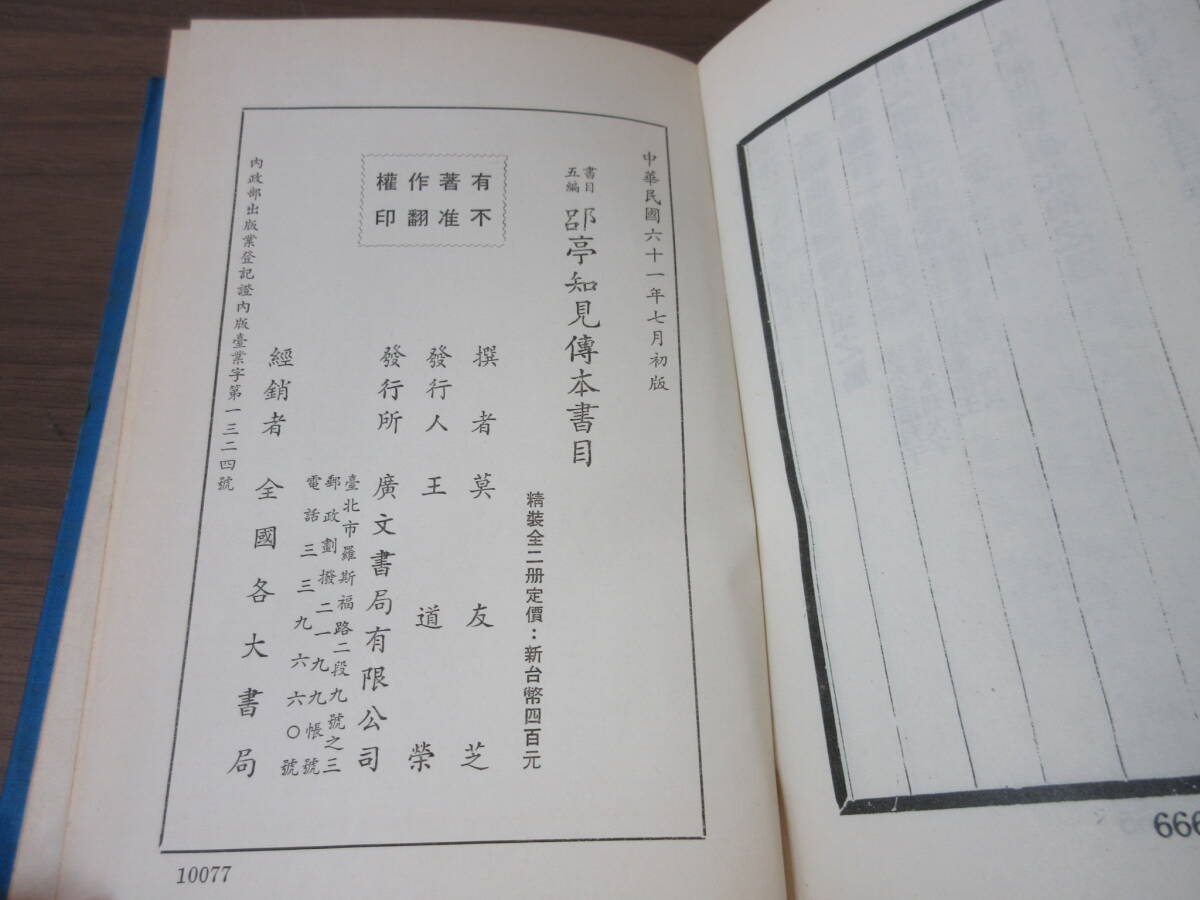 中華民國六十一年七月初版
書目五編 郘亭知見傳本書目
精裝全二册定價：新台幣四百元
有不
著准
作翻
權印
撰者 莫友芝
發行人 王道榮
發行所 廣文書局有限公司
臺北市羅斯福路二段九號之三
郵政劃撥二一九九帳號
電話三三九六六〇號
經銷者 全國各大書局
內政部出版業登記證內版臺業字第一三二四號
10077
666